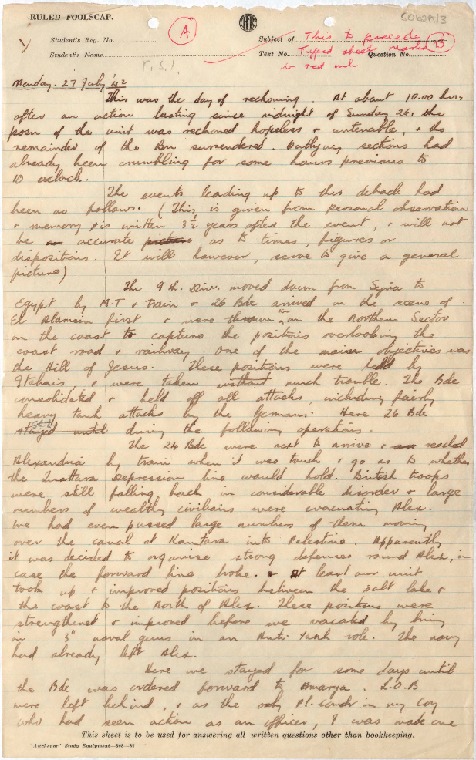 RULED FOOLSCAP.
Student's Reg. No.
Student's Name
Subject of This to precede
Test No. Typed sheet marked B
Question No.
in red ink
A
Monday. 27 July 42
This was the day of reckoning. At about 10.00 hrs,
after an action lasting since midnight of Sunday 26, the
posn of the unit was reckoned hopeless & untenable, & the
remainder of the Bn surrendered. Outlying sections had
already been crumbling for some hours previous to
10 o'clock.
The events leading up to this debacle had
been as follows. (This is given from personal observation
& memory & is written 3½ years after the event, & will not
be accurate as to times, figures or
dispositions. It will however, serve to give a general
picture)
The 9th. Divn. moved down from Syria to
Egypt by M.T & Train & 26 Bde arrived in the area of
El Alamein first & were thrown in, on the Northern Sector
on the coast to capture the positions overlooking the
coast road & railway. One of the main objectives was
the Hill of Jesus. These positions were held by
Italians & were taken without much trouble. The Bde
consolidated & held off all attacks, including fairly
heavy tank attacks by the Germans. Here 26 Bde
stayed during the following operations.
The 24 Bde were next to arrive & reached
Alexandria by train when it was touch & go as to whether
the Quattara Depression line would hold. British troops
were still falling back in considerable disorder & large
numbers of wealthy civilians were evacuating Alex.
We had even passed large numbers of them moving
over the canal at Kantara into Palestine. Apparently
it was decided to organise strong defences round Alex, in
case the forward line broke. At least our unit
took up & improved positions between the salt lake &
the coast to the North of Alex. These positions were
strengthened & improved before we vacated by
in 3" naval guns in an Anti Tank role. The navy
had already left Alex.
Here we stayed for some days until
the Bde was ordered forward to Amarya. L.O.B
were left behind, & as the only Pl. Comdr in my Coy
who had seen action as an officer, I was made one
This sheet is to be used for answering all written questions other than bookkeeping.